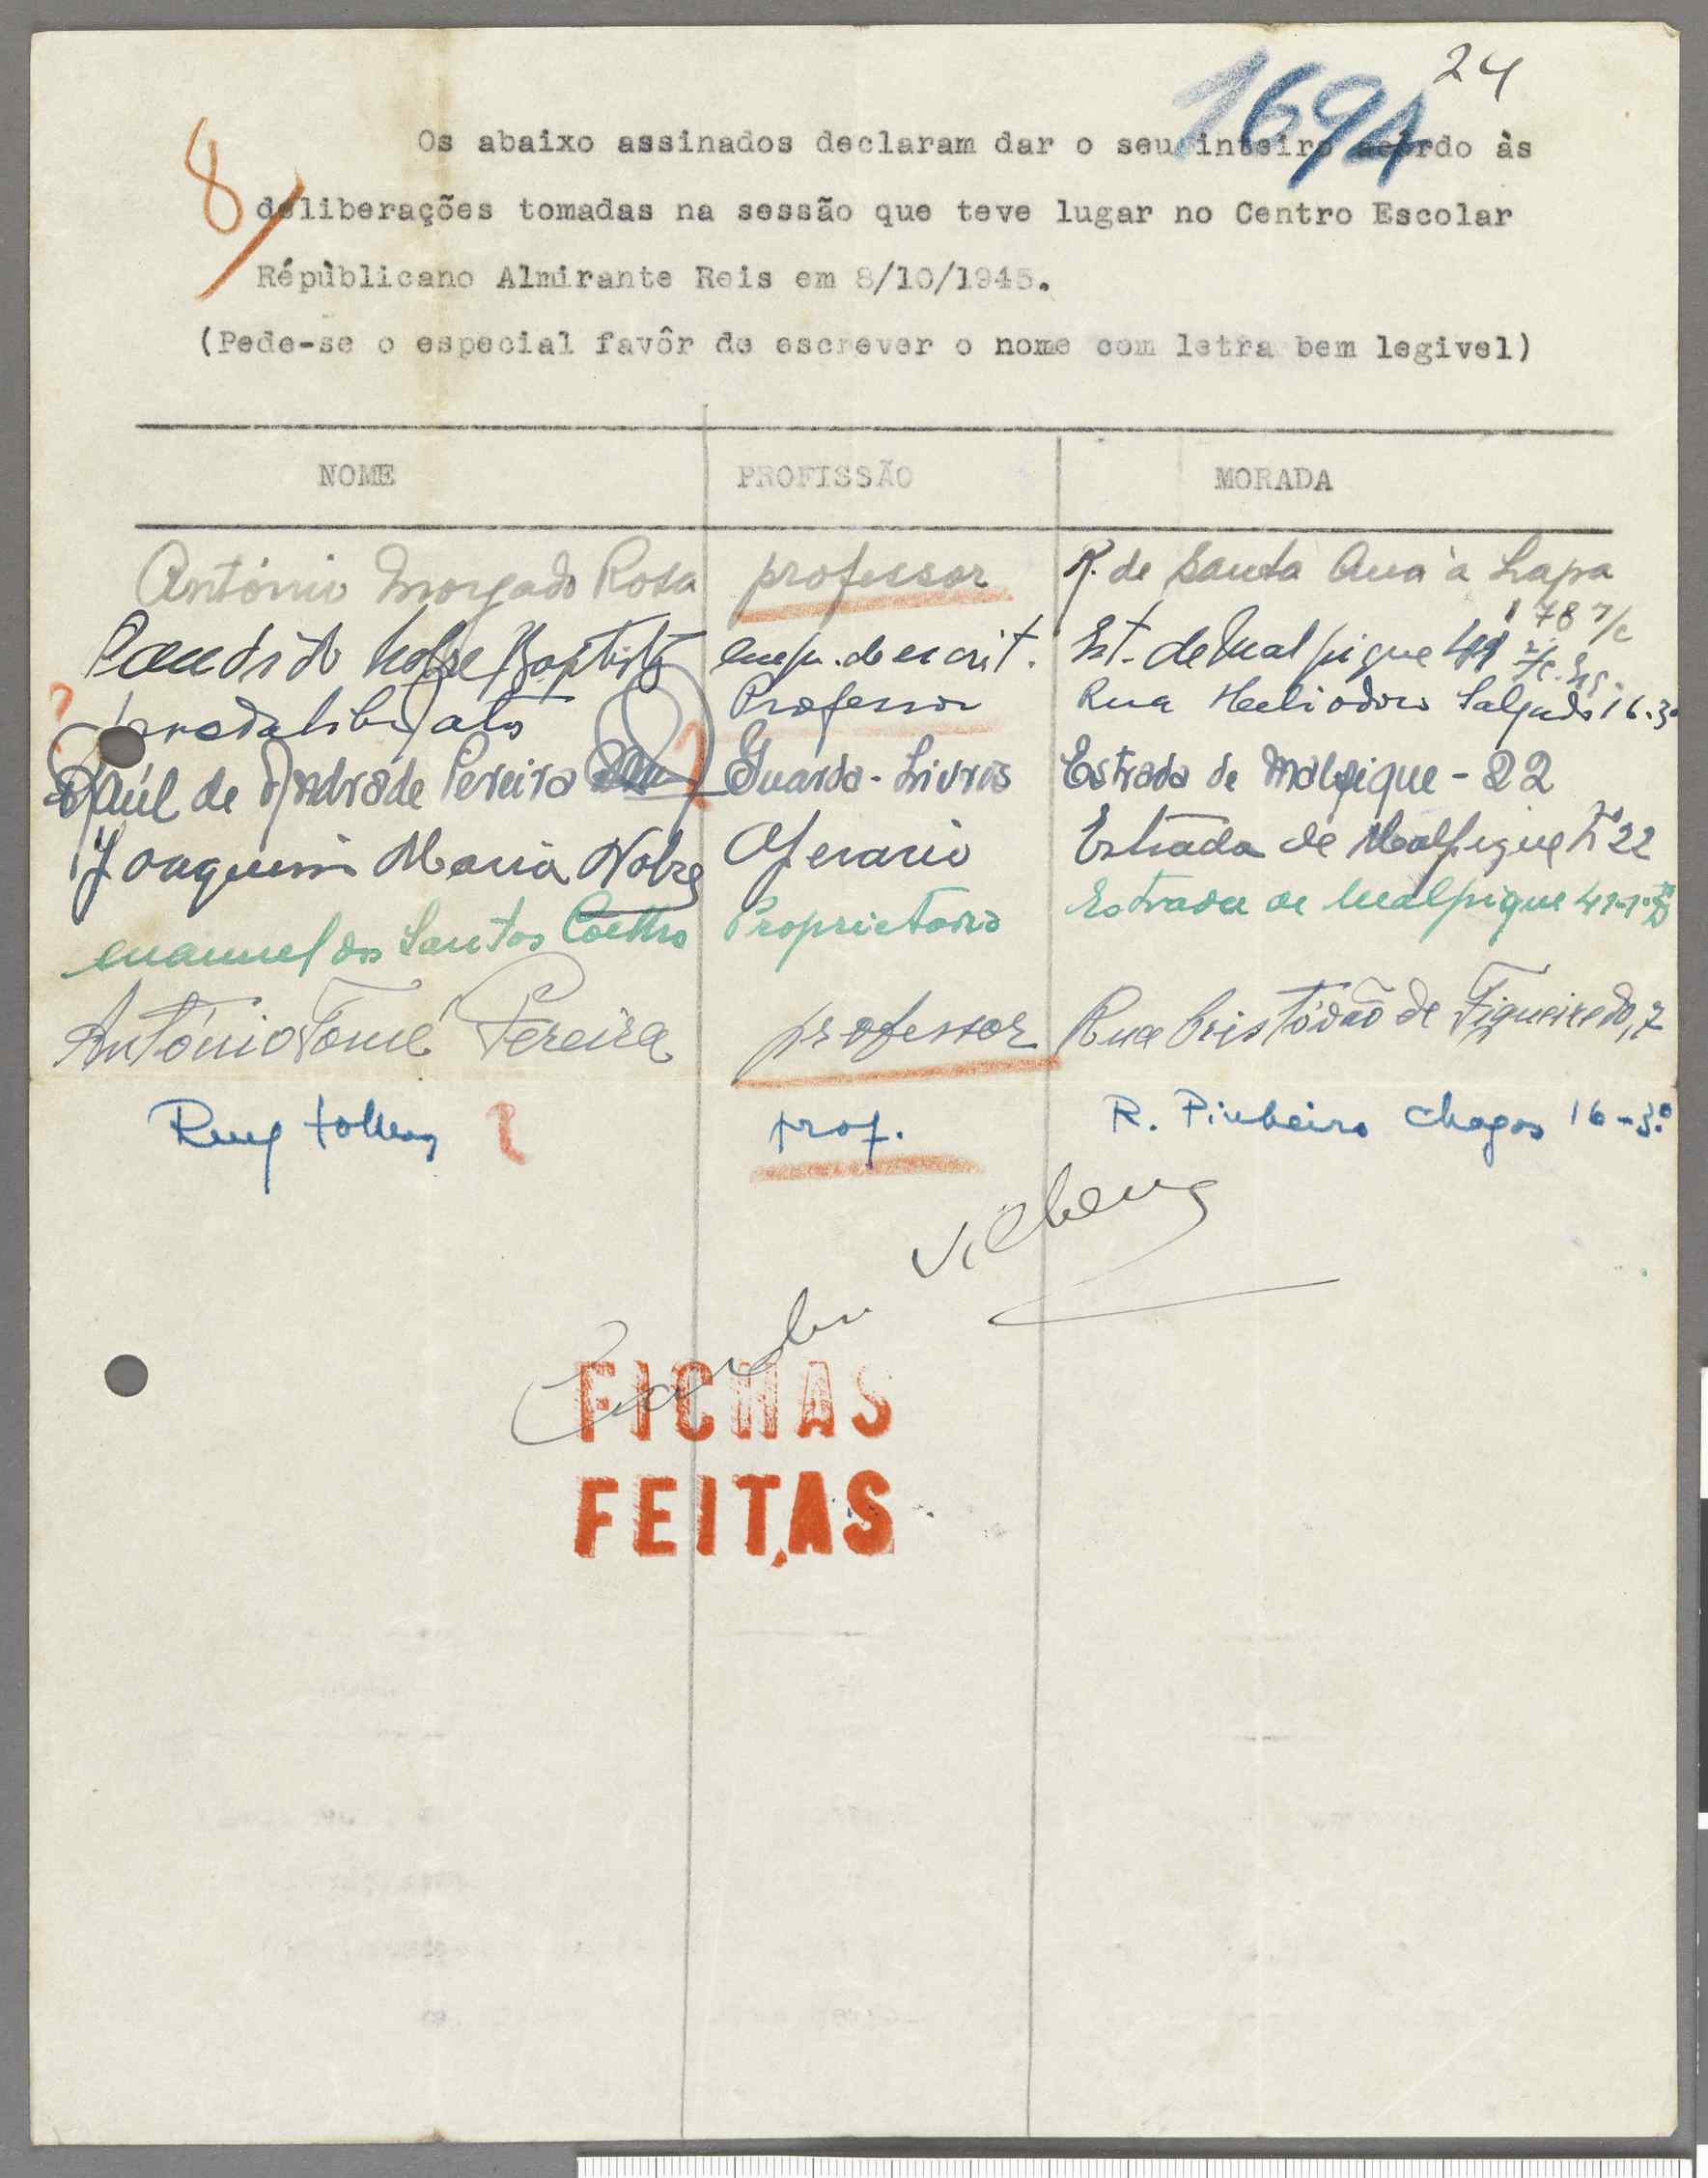 24
1694
8/
Os abaixo assinados declaram dar o seu inteiro acôrdo às
deliberações tomadas na sessão que teve lugar no Centro Escolar
Républicano Almirante Reis em 8/10/1945.
(Pede-se o especial favôr de escrever o nome com letra bem legivel)
NOME PROFISSÃO MORADA
António Morgado Rosa professor R. de Santa Ana à Lapa
178 r/c
Candido Nobre Baptista emp. de escrit. Est. de Malpique 41 r/c.
Professor Rua Heliodoro Salgado 16.3º
Raúl de Andrade Pereira Guarda-Livros Estrada de Malpique - 22
Joaquim Maria Nobre Operario Estrada de Malpique Nº 22
Manuel dos Santos Coelho Proprietario Estrada de Malpique 41-1º D
António Tomé Pereira professor Rua Cristóvão de Figueiredo, 7
Ruy prof. R. Pinheiro Chagas 16-3º
FICHAS
FEITAS